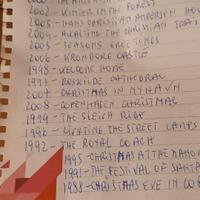 2002 - WINTER IN THE FOREST
2005 - HANS CHRISTIAN ANDERSEN HOU
2004 - AWAITING THE CHRISTIAN TRAI
2003 - SEASONS GREETINGS
2006 - KRONBORG CASTLE
1998 - WELCOME HOME
1995 - ROSKILDE CATHEDRAL
2007 - CHRISTMAS IN NYHAVN
2008 - COPENHAGEN CHRISTMAS
1994 - THE SLEIGH RIDE
1996 - LIGHTING THE STREET LAMPS
1992 - THE ROYAL COACH
1995 - CHRISTMAS AT THE MANOR
1991 - THE FESTIVAL OF SANTA
1988 - CHRISTMAS EVE IN CO